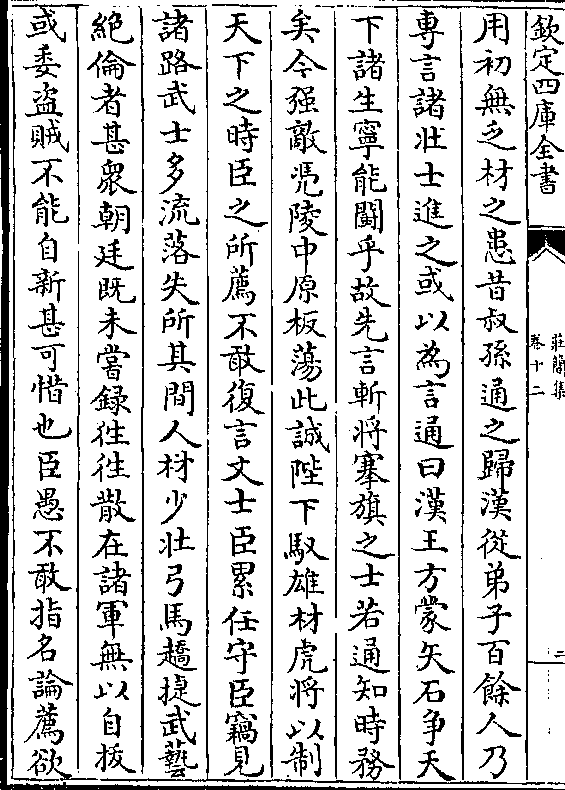 欽定四庫全書
莊簡集
卷十二
二
用初無乏材之患昔叔孫通之歸漢從弟子百餘人乃
專言諸壯士進之或以為言通曰漢王方蒙矢石争天
下諸生寧能鬭乎故先言斬將搴旗之士若通知時務
矣今强敵憑陵中原板蕩此誠陛下馭雄材虎將以制
天下之時臣之所薦不敢復言文士臣累任守臣竊見
諸路武士多流落失所其間人材少壯弓馬趫捷武藝
絶倫者甚衆朝廷既未嘗録徃徃散在諸軍無以自拔
或委盗賊不能自新甚可惜也臣愚不敢指名論薦欲